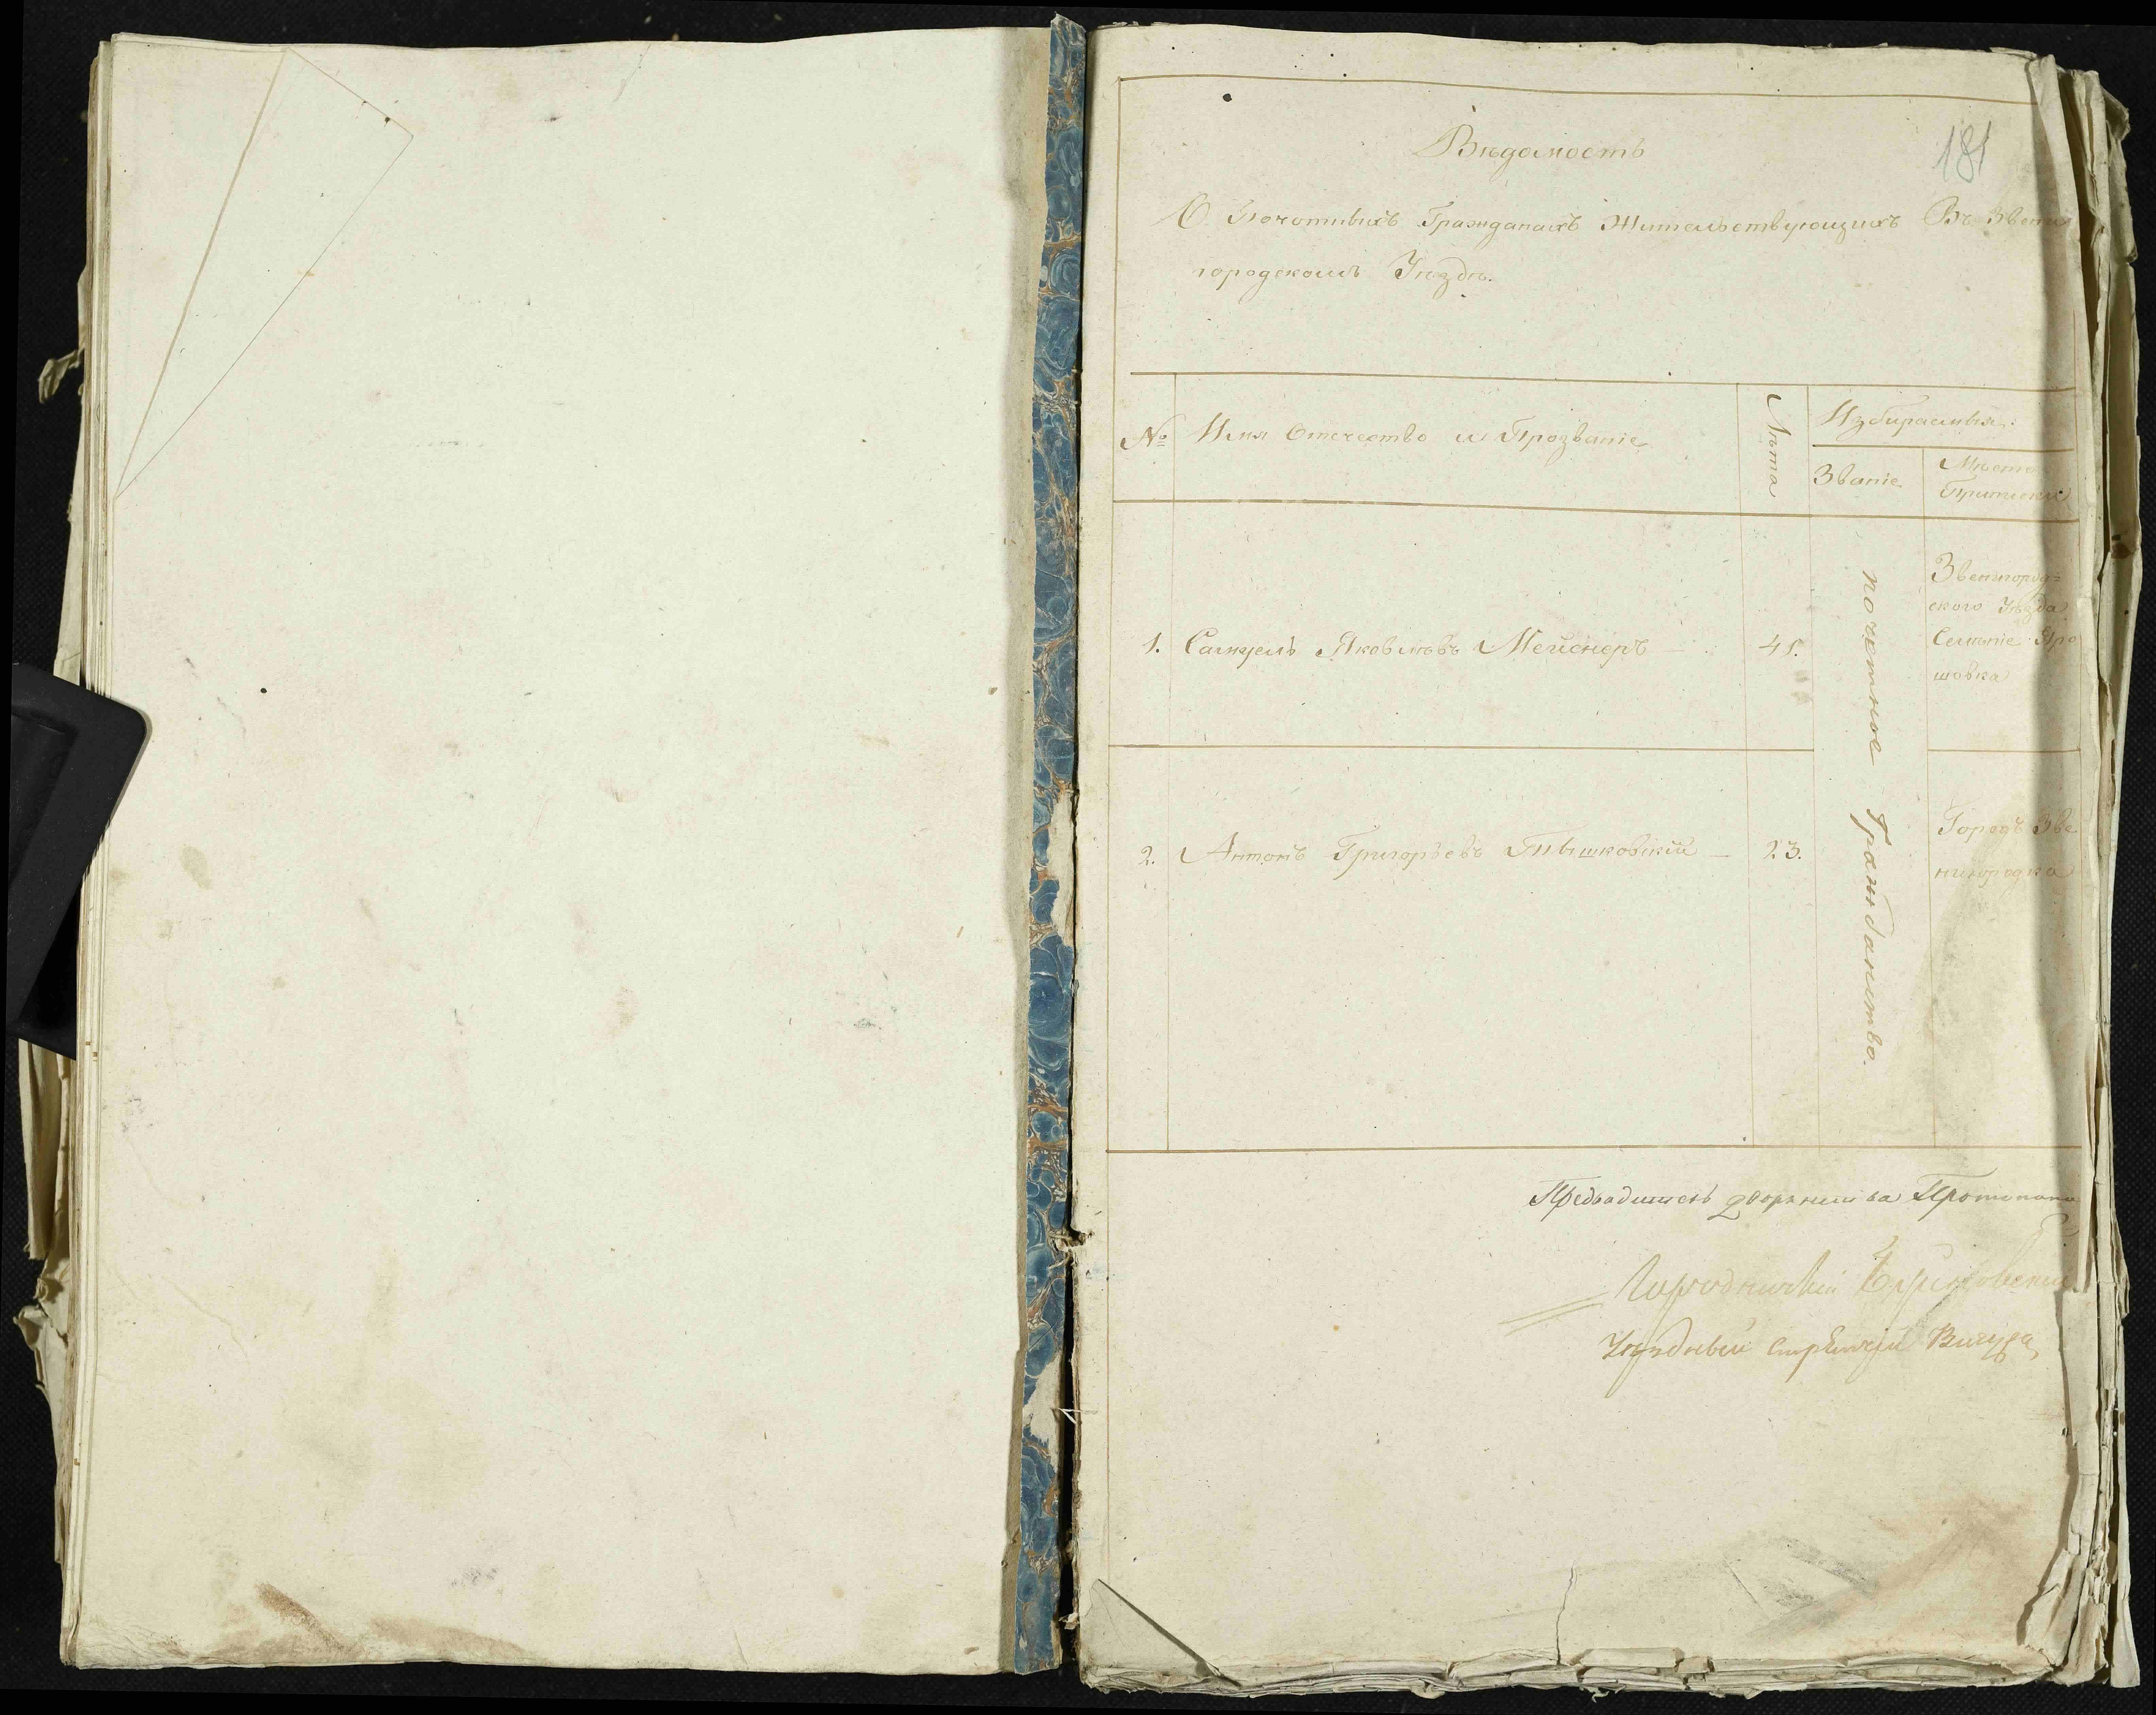 181
Вѣдомость
О Почотныхъ Гражданахъ Жительствующихъ Въ Звени
городскомъ Уѣздѣ.
№
Имя Отечество и Прозваніе
Лѣта
Избираемыя
Званіе
Мѣсто
Приписки
1.
Самуель Яковлѣвъ Мейснеръ
41.
почетное Гражданство.
Звенигород=
ского Уѣзда
Селеніе
шовка
2.
Антонъ Григорьевъ Пышковскій
23.
Городъ Зве
нигородка
Предводитель дворянства
Городничій
Уѣздный Стряпчій